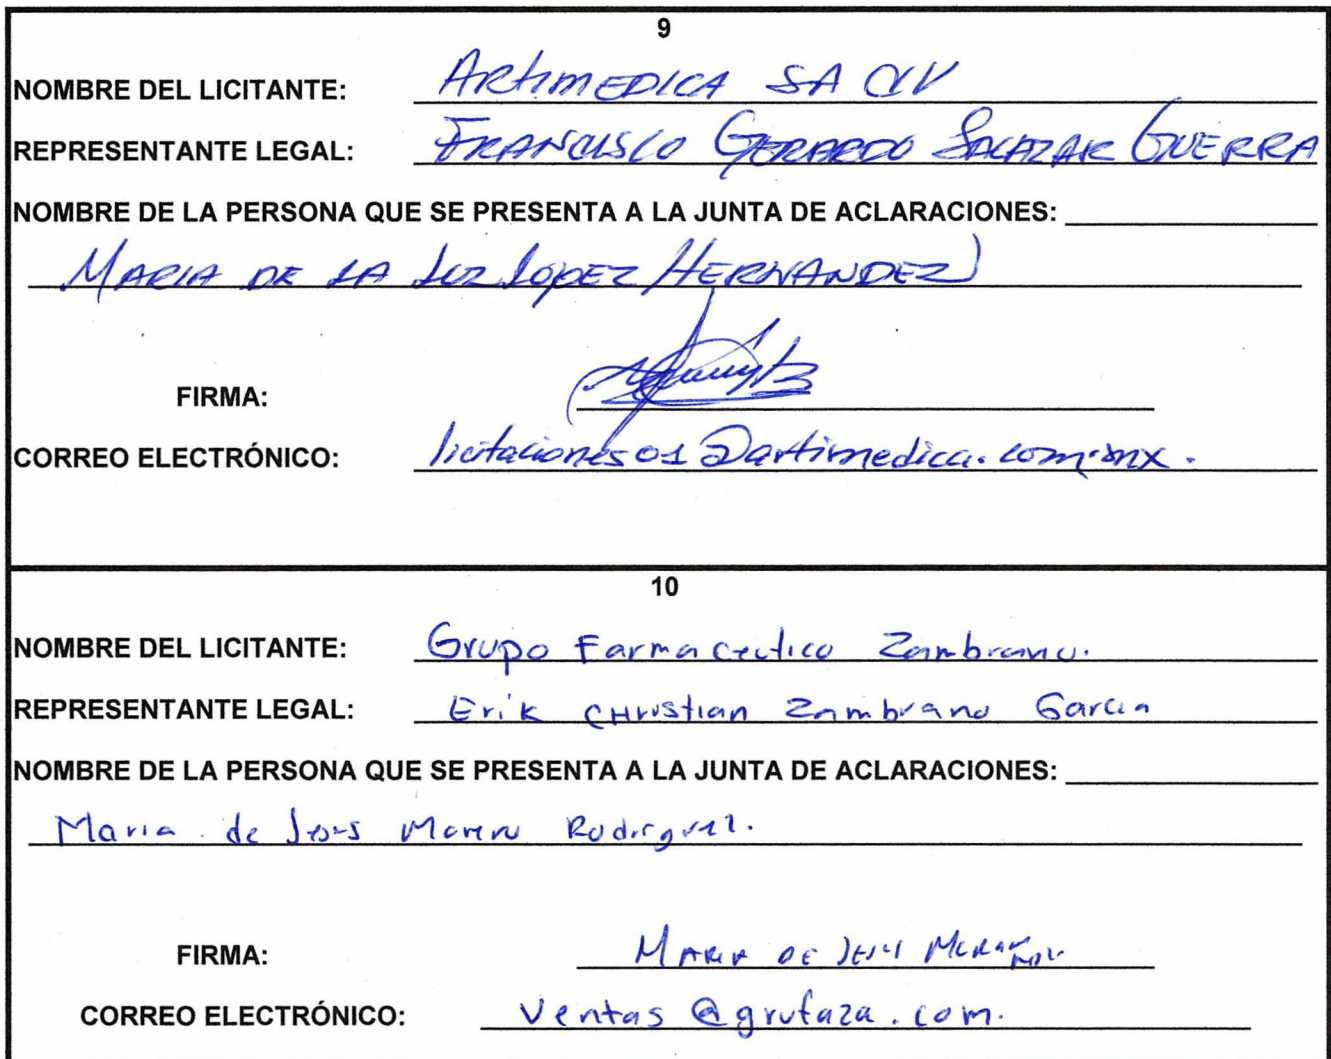 9
NOMBRE DEL LICITANTE: Artimedica SA CV
REPRESENTANTE LEGAL: Francisco Gerardo Salazar Guerra
NOMBRE DE LA PERSONA QUE SE PRESENTA A LA JUNTA DE ACLARACIONES:
Maria de la Luz Lopez Hernandez
FIRMA:
CORREO ELECTRÓNICO: licitaciones01@artimedica.com.mx.
10
NOMBRE DEL LICITANTE: Grupo Farmaceutico Zambrano.
REPRESENTANTE LEGAL: Erik Christian Zambrano Garcia
NOMBRE DE LA PERSONA QUE SE PRESENTA A LA JUNTA DE ACLARACIONES:
Maria de Jesus Moreno Rodriguez.
FIRMA: Maria de Jesus
CORREO ELECTRÓNICO: Ventas@grufaza.com.